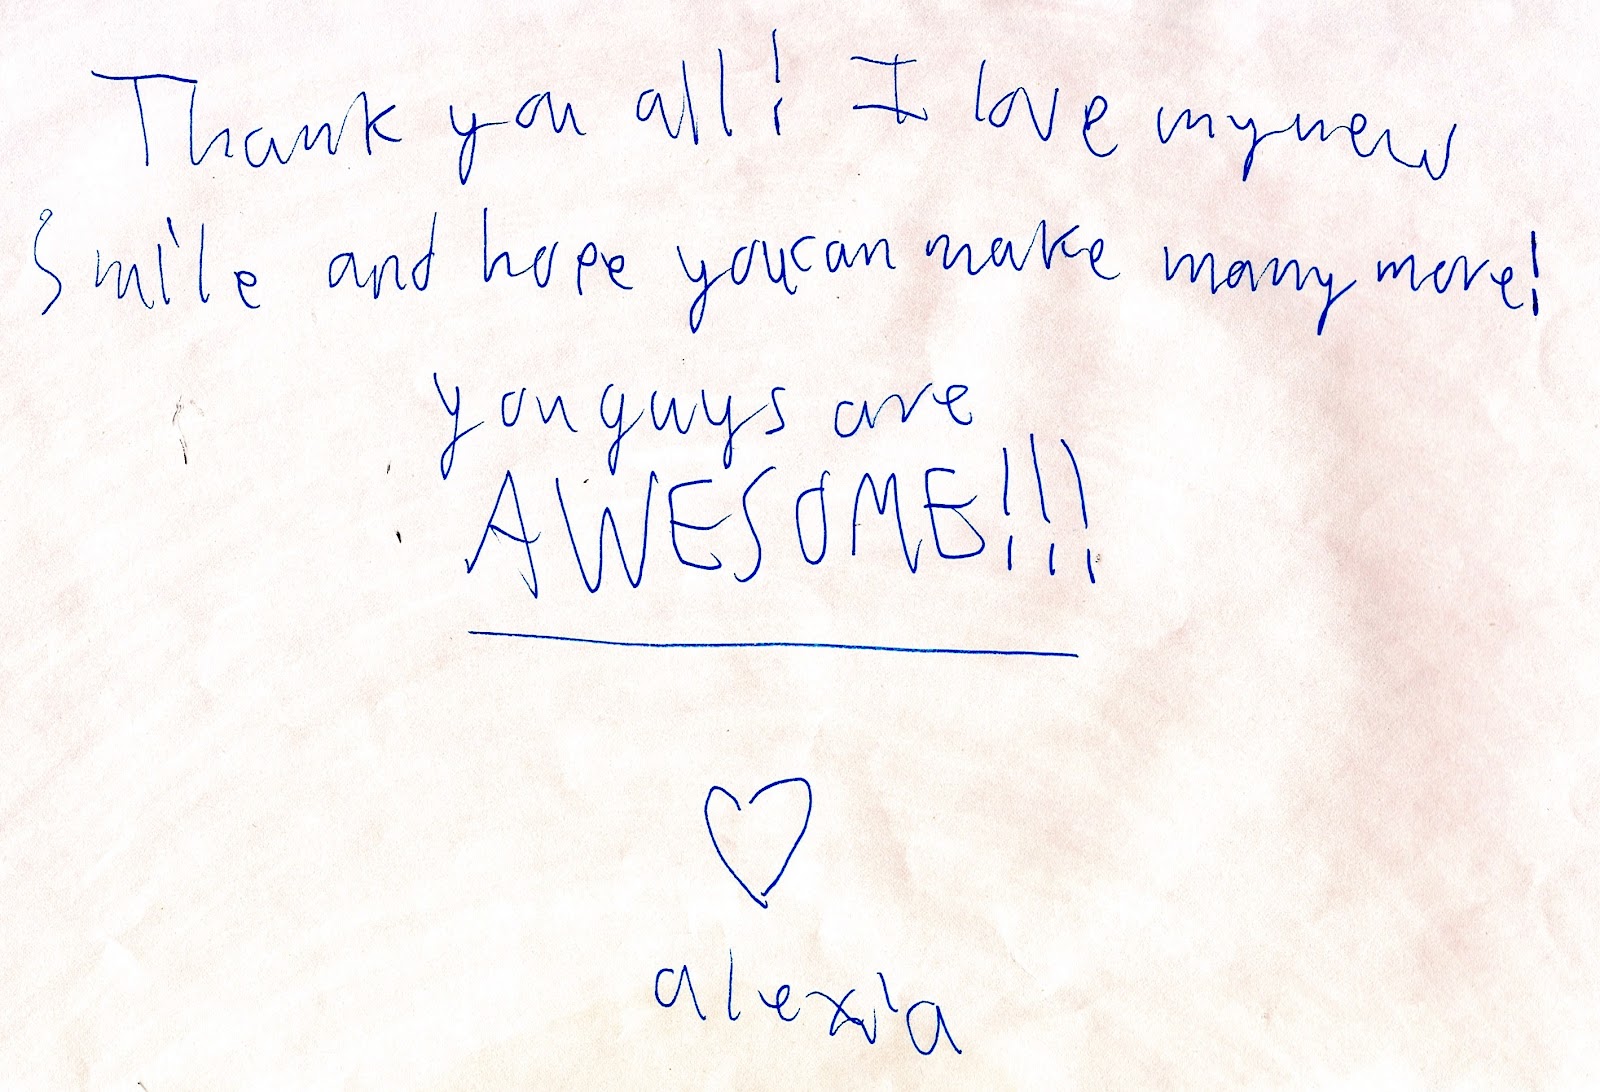 Thank you all! I love my new
Smile and hope you can make many more!
you guys are
AWESOME!!!
alexia